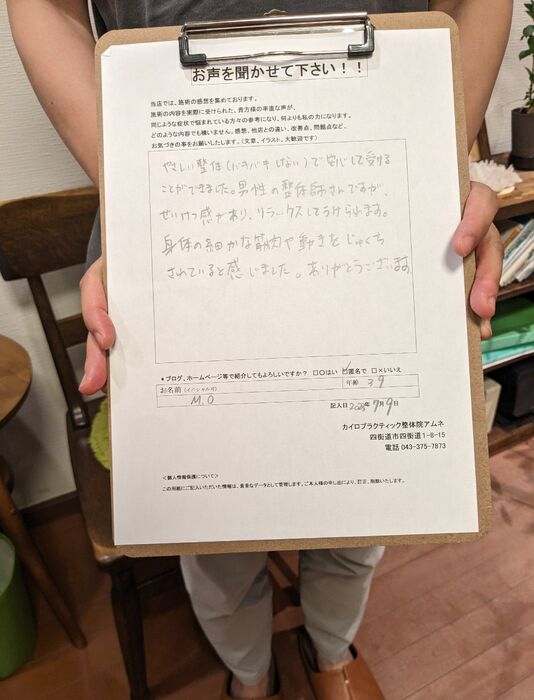 お声を聞かせて下さい！！
当店では、施術の感想を集めております。
施術の内容を実際に受けられた、貴方様の率直な声が、
同じような症状で悩まれている方々の参考になり、何よりも私の力になります。
どのような内容でも構いません。感想、他店との違い、改善点、問題点など、
お気づきの事をお願いしたします。（文章、イラスト、大歓迎です）
やさしい整体（バキバキしない）で安心して受ける
ことができました。男性の整体師さんですが、
せいけつ感があり、リラックスしてうけられます。
身体の細かな筋肉や動きをじゅくち
されていると感じました。ありがとうございます
＊ブログ、ホームページ等で紹介してもよろしいですか？ □○はい ☑匿名で □×いいえ
お名前（イニシャル可） 年齢 39
M.O
記入日2025年7月9日
カイロプラクティック整体院アムネ
四街道市四街道1-8-15
電話 043-375-7873
＜個人情報保護について＞
この用紙にご記入いただいた情報は、貴重なデータとして管理します。ご本人様の申し出により、訂正、削除いたします。